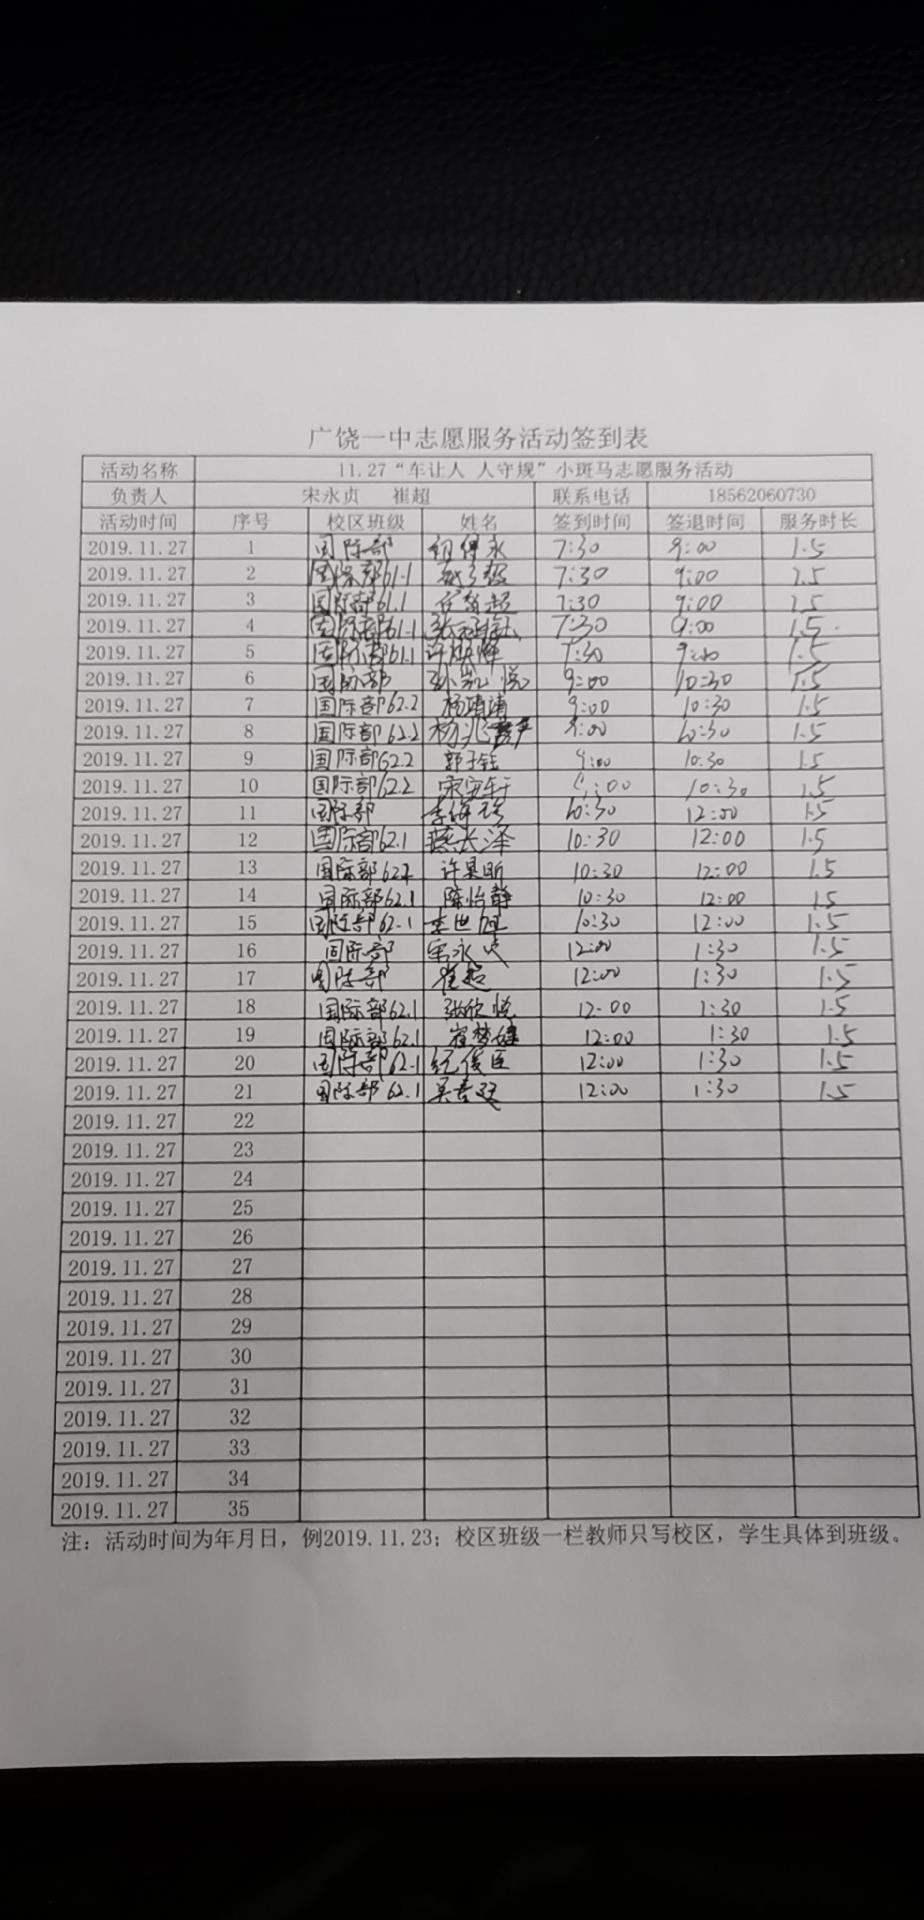 广饶一中志愿服务活动签到表
活动名称 11.27“车让人 人守规”小斑马志愿服务活动
负责人 宋永贞 崔超 联系电话 18562060730
活动时间 序号 校区班级 姓名 签到时间 签退时间 服务时长
2019.11.27 1 国际部 7:30 9:00 1.5
2019.11.27 2 国际部61.1 7:30 9:00 1.5
2019.11.27 3 国际部61.1 7:30 9:00 1.5
2019.11.27 4 国际部61.1 7:30 9:00 1.5
2019.11.27 5 国际部61.1 7:30 9:00 1.5
2019.11.27 6 国际部 孙凯悦 9:00 10:30 1.5
2019.11.27 7 国际部62.2 杨靖涛 9:00 10:30 1.5
2019.11.27 8 国际部62.2 9:00 10:30 1.5
2019.11.27 9 国际部62.2 郭子钰 9:00 10:30 1.5
2019.11.27 10 国际部62.2 宋安轩 9:00 10:30 1.5
2019.11.27 11 国际部 10:30 12:00 1.5
2019.11.27 12 国际部62.1 燕长泽 10:30 12:00 1.5
2019.11.27 13 国际部62.2 许昊昕 10:30 12:00 1.5
2019.11.27 14 国际部62.1 陈怡静 10:30 12:00 1.5
2019.11.27 15 国际部62.1 李世旭 10:30 12:00 1.5
2019.11.27 16 国际部 宋永贞 12:00 1:30 1.5
2019.11.27 17 国际部 崔超 12:00 1:30 1.5
2019.11.27 18 国际部62.1 张欣悦 12:00 1:30 1.5
2019.11.27 19 国际部62.1 12:00 1:30 1.5
2019.11.27 20 国际部62.1 纪俊臣 12:00 1:30 1.5
2019.11.27 21 国际部62.1 12:00 1:30 1.5
2019.11.27 22
2019.11.27 23
2019.11.27 24
2019.11.27 25
2019.11.27 26
2019.11.27 27
2019.11.27 28
2019.11.27 29
2019.11.27 30
2019.11.27 31
2019.11.27 32
2019.11.27 33
2019.11.27 34
2019.11.27 35
注：活动时间为年月日，例2019.11.23；校区班级一栏教师只写校区，学生具体到班级。